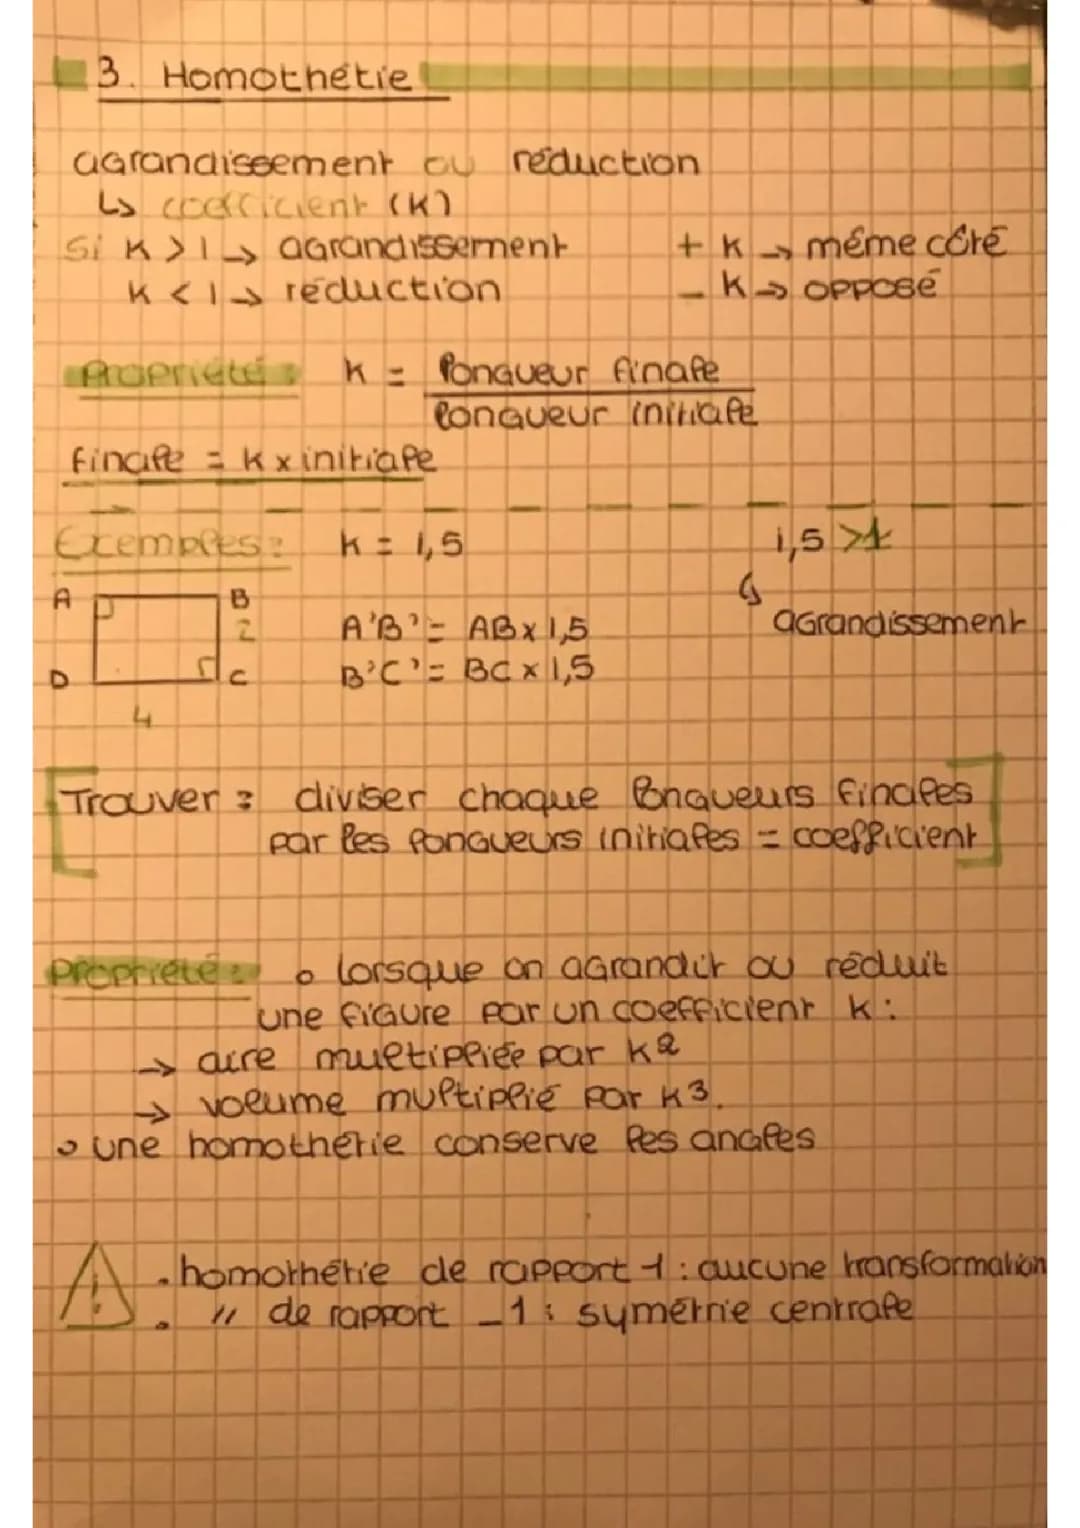 3. Homothétie
agrandissement ou réduction
↳ coefficient (K)
Si K > 1 → agrandissement + K → même côté
K < 1 → réduction - K → opposé
Propriété : K = longueur finale
longueur initiale
finale = K x initiale
Exemples : K = 1,5 1,5 > 1
A B ↳ agrandissement
2 A'B' = AB x 1,5
D C B'C' = BC x 1,5
4
Trouver : diviser chaque longueurs finales
par les longueurs initiales = coefficient
Propriété : o lorsque on agrandit ou réduit
une figure par un coefficient K :
→ aire multipliée par K2
→ volume multiplié par K3.
o une homothétie conserve les angles
! . homothétie de rapport 1 : aucune transformation
. " de rapport -1 : symétrie centrale